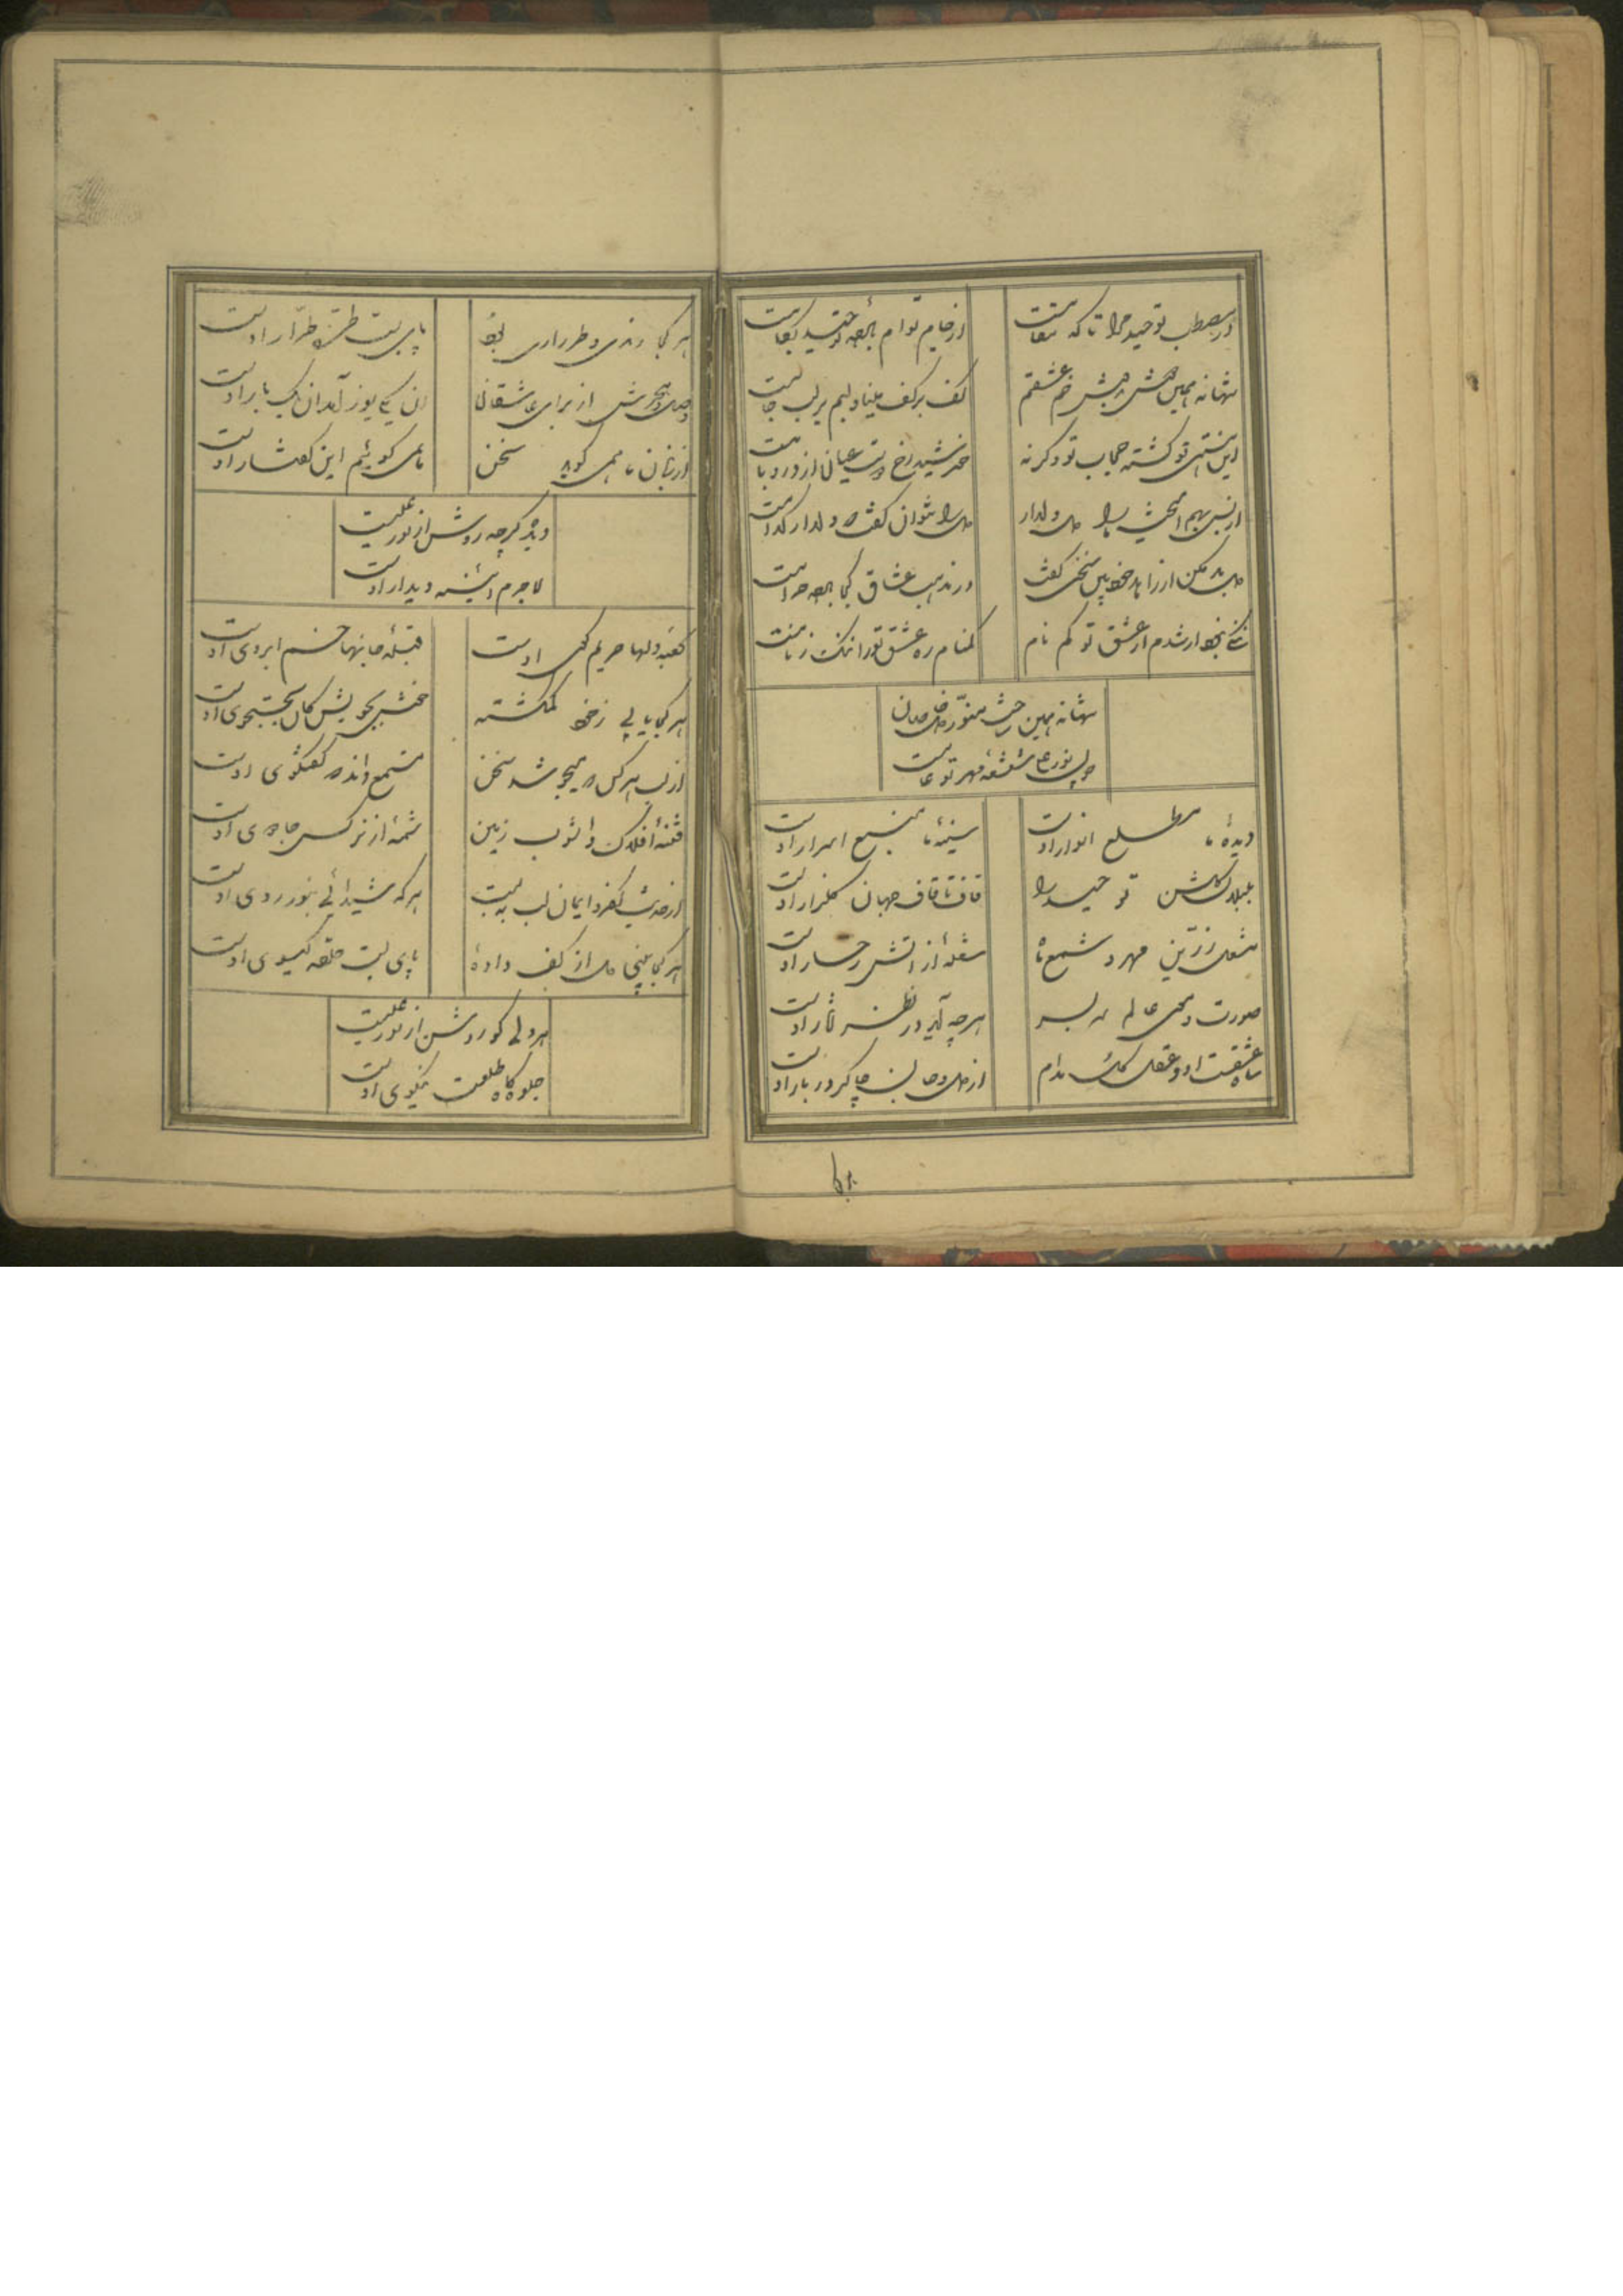 در مصطب توحید مرا تا که مقامست
از جام توام باده توحید بکامست
تنها نه همین
عشقم
کف بر کف مینا و لبم بر لب جامست
این هستی تو گشته حجاب تو وگرنه
خورشید رخ دوست عیان از در و بامست
از بس بهم آمیخت دلدار
دل را نتوان گفت که دلدار کدامست
سخن گفت
در مذهب عشاق کجا باده حرامست
از عشق تو گم نام
گمنام ره عشق تو را ننگ ز نامست
تنها نه همین
منور
نور علی شعشعه مهر تو عامست
دیده ما مطلع انوار اوست
سینه ما منبع اسرار اوست
بلبلان گلشن توحید را
قاف تا قاف جهان گلزار اوست
مشعل زرین مهر و شمع ماه
شعله از آتش رخسار اوست
صورت و معنی عالم سر بسر
هرچه آید در نظر آثار اوست
شاه عشقست او و عقل کل مدام
از دل و جان چاکر دربار اوست
هر کجا رندی و طراری بود
پای بست طره طرار اوست
وصل و هجرش از برای عاشقان
آن یکی نور آمد آن یک نار اوست
از زبان ما همی گوید سخن
ما نمی گوئیم این گفتار اوست
دیده گرچه روشن از نور علیست
لاجرم آئینه دیدار اوست
کعبه دلها حریم کوی اوست
قبله جانها خم ابروی اوست
هر کجا یابی ز خود گمگشته
بجستجوی اوست
از لب هر کس که میجوشد سخن
مستمع داند که گفتگوی اوست
فتنه افلاک و آشوب زمین
شمه از نرگس جادوی اوست
از حدیث کفر و ایمان لب به بست
هر که شیدائی بنور روی اوست
هر کجا بینی دل از کف داده
پای بست حلقه گیسوی اوست
هر دلی کو روشن از نور علیست
جلوه گاه طلعت نیکوی اوست